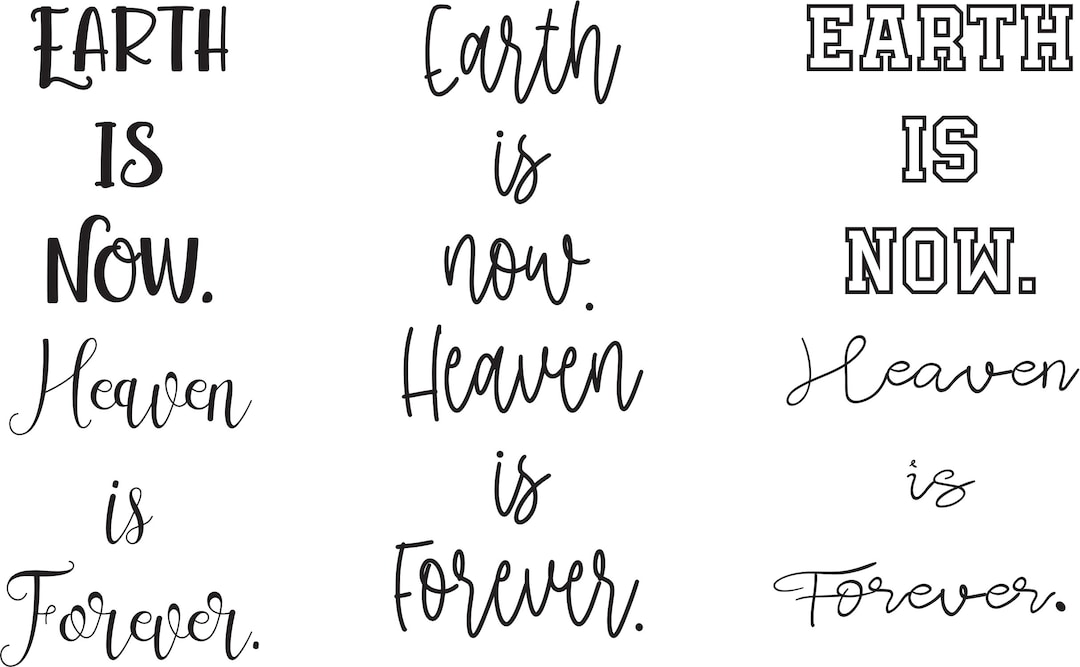 EARTH
IS
NOW.
Heaven
is
Forever.
Earth
is
now.
Heaven
is
Forever.
EARTH
IS
NOW.
Heaven
is
Forever.